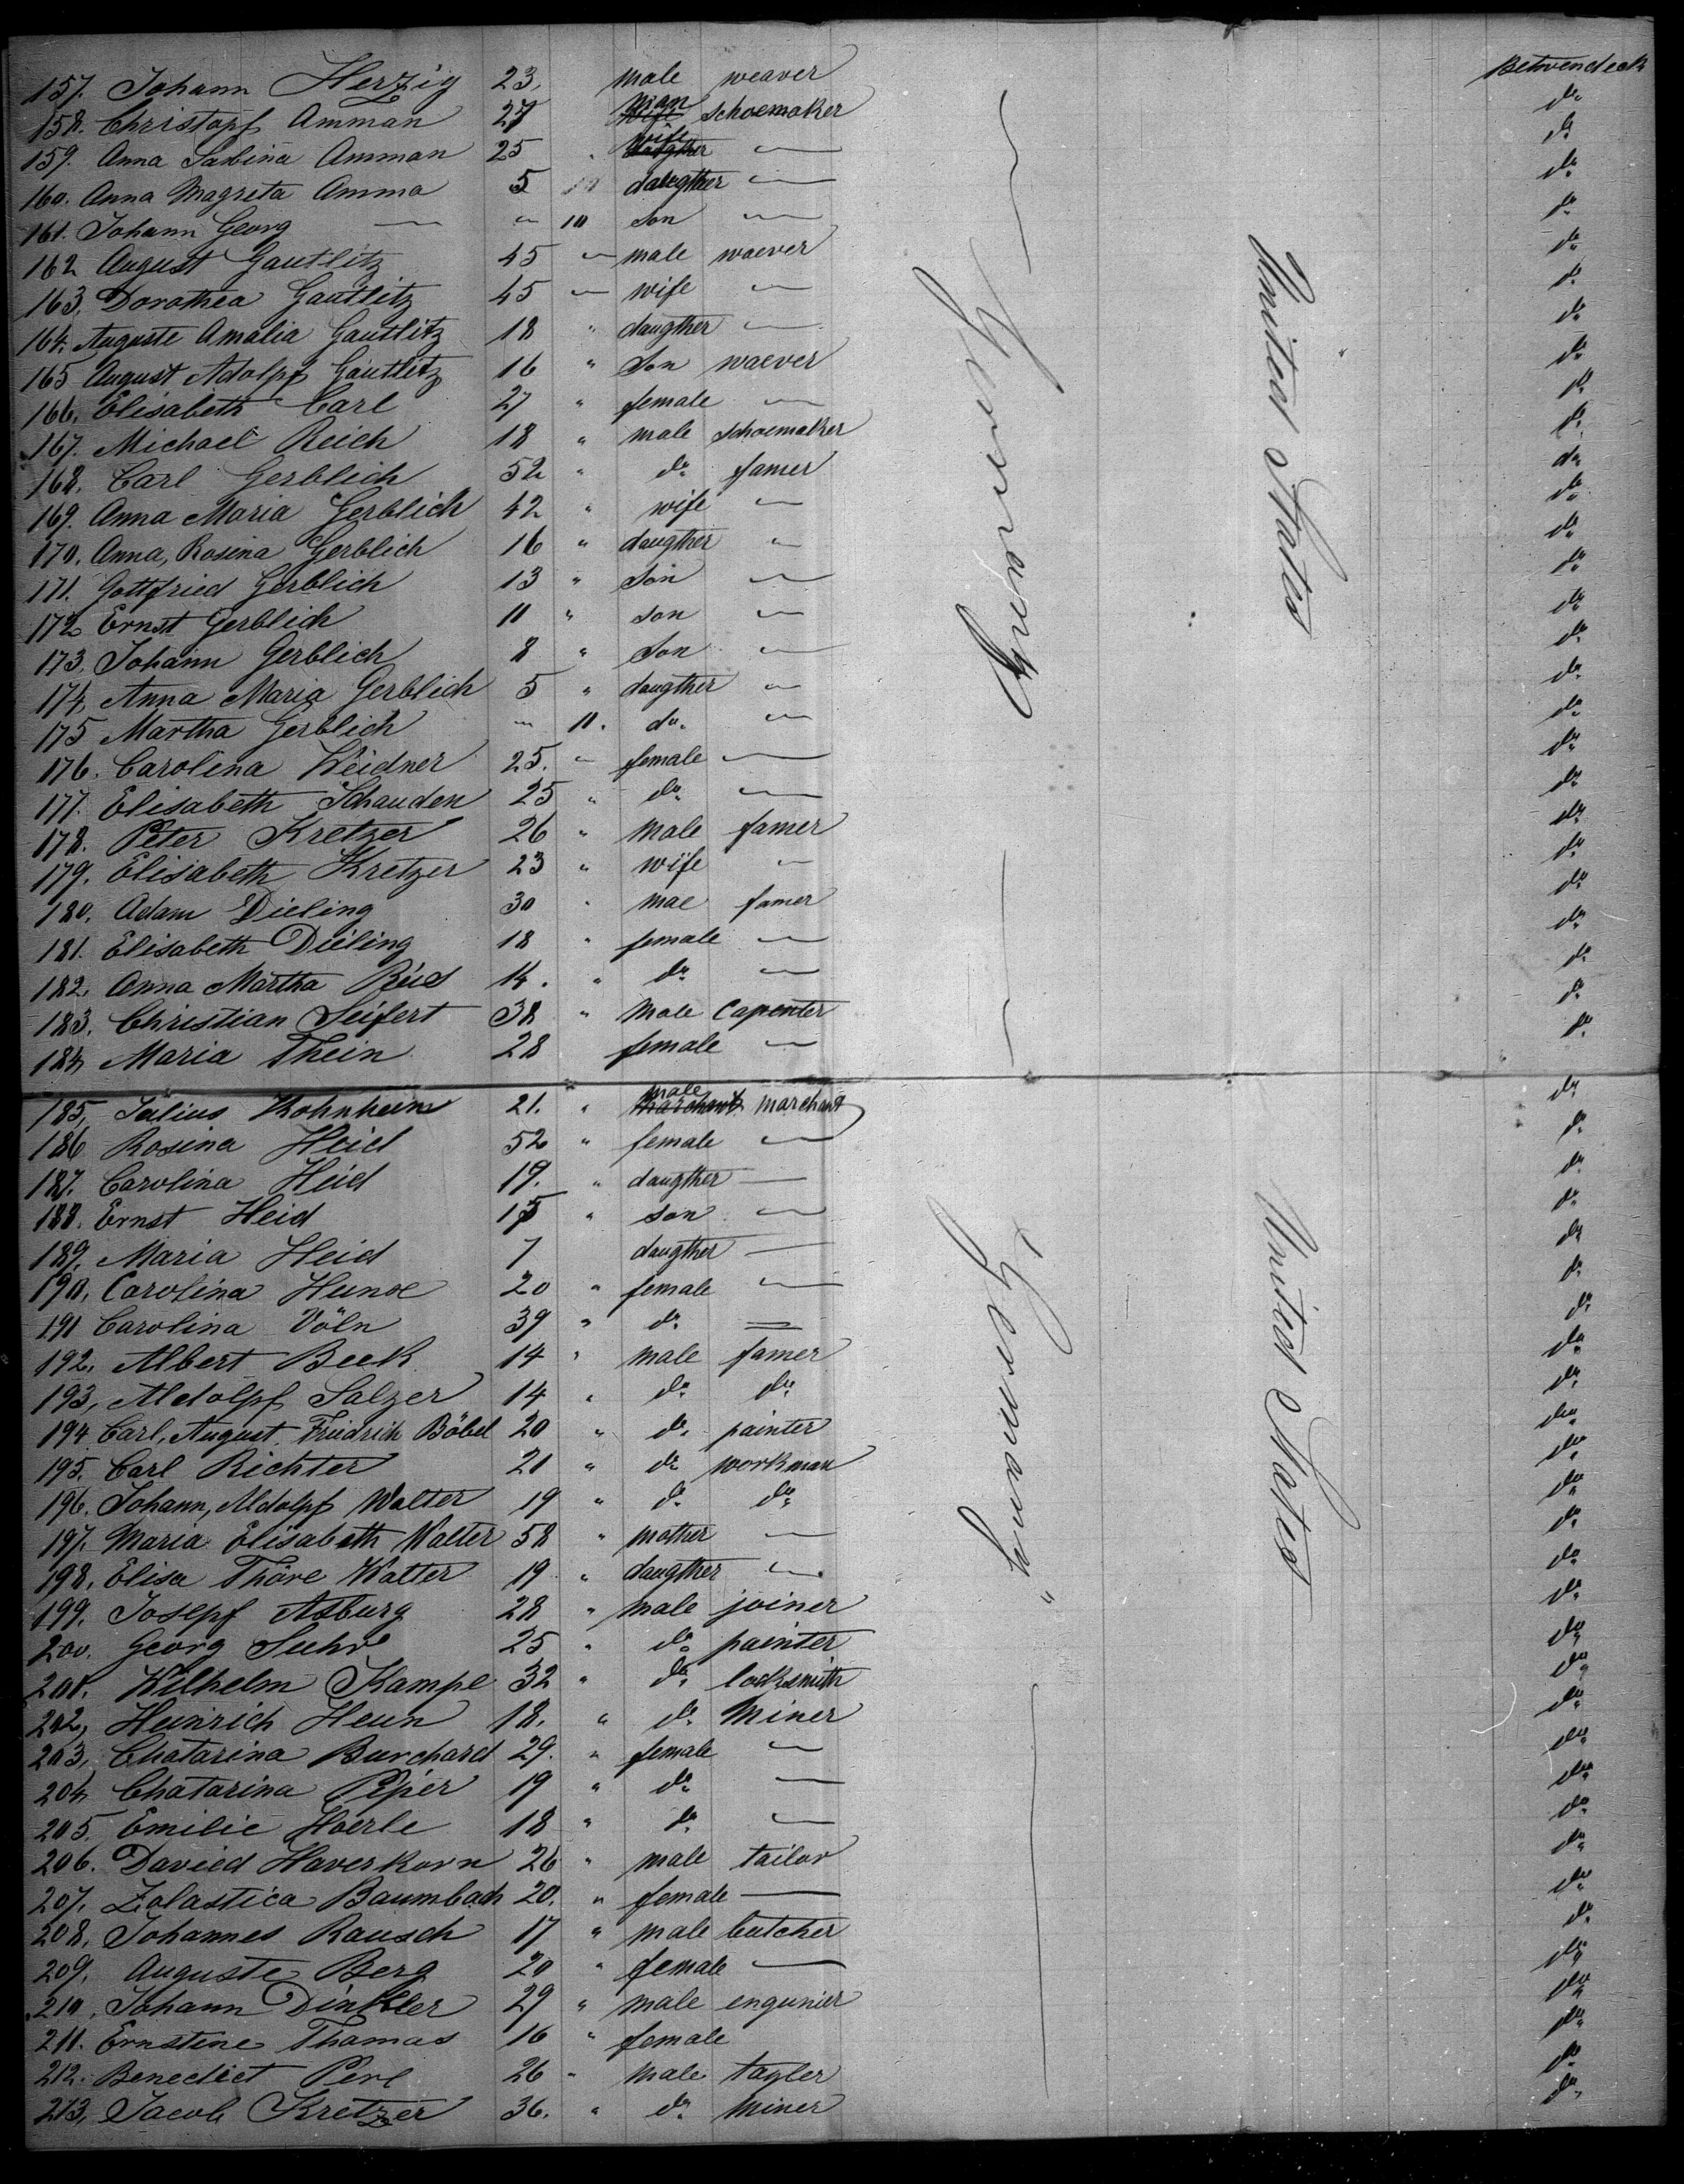 157. Johann Herzig 23. male weaver Betwendeck
158. Christopf Amman 27 man schoemaker do.
159. Anna Sabina Amman 25 " wife — do.
160. Anna Magreta Amma 5 daugther — do.
161. Johann Georg — — 10 son — do.
162 August Gautlitz 45 — male waever do.
163. Dorothea Gautlitz 45 — wife — do.
164. Auguste Amalia Gautlitz 18 " daugther — do.
165 August Adolpf Gautlitz 16 " Son waever do.
166. Elisabeth Carl 27 " female — do.
167. Michael Reich 18 " male schoemaker do.
168. Carl Gerblich 52 " do. famer do.
169. Anna Maria Gerblich 42 " wife — do.
170. Anna, Rosina Gerblich 16 " daugther " do.
171. Gottfried Gerblich 13 " Son — do.
172 Ernst Gerblich 11 " son — do.
173. Johann Gerblich 8 " Son — do.
174. Anna Maria Gerblich 5 " daugther — do.
175 Martha Gerblich — 11. do. — do.
176. Carolina Weidner 25. — female — do.
177. Elisabeth Schauden 25 " do. — do.
178. Peter Kretzer 26 " male famer do.
179. Elisabeth Kretzer 23 " wife — do.
180. Adam Dieling 30 " mae famer do.
181. Elisabeth Dieling 18 " female — do.
182. Anna Martha 14. " do. — do.
183. Christian Seifert 38 " Male Capenter do.
184 Maria Thein 28 female — do.
Germany
United States
185, Julius 21. " male marchant do.
186 Rosina Heid 52 " female — do.
187. Carolina Heid 19. " daugther — do.
188. Ernst Heid 15 " son — do.
189. Maria Heid 7 daugther — do.
190, Carolina 20 " female — do.
191 Carolina Völn 39 " do. = do.
192, Albert Beek 14 " male famer do.
193, Aldolpf Salzer 14 " do. do. do.
194 Carl, August Friedrich Böbel 20 " do. painter do.
195. Carl Richter 21 " do. workman do.
196. Johann, Aldolpf Walter 19 " do. do. do.
197. Maria Elisabeth Walter 58 " mother — do.
198. Elisa Walter 19 " daugther — do.
199. Josepf Asburg 28 " male joiner do.
200. Georg Suhr 25 " do. painter do.
201. Wilhelm Kampe 32 " do. locksmith do.
202, Heinrich Heun 18. " do. Miner do.
203, Chatarina Burchard 29. " female — do.
204 Chatarina Piper 19 " do. — do.
205. Emilie Hoerle 18 " do. — do.
206. Davied Haverkorn 26 " male tailor do.
207. Zolastica Baumbach 20. " female — do.
208. Johannes Rausch 17 " male butcher do.
209. Auguste Berg 20 " female — do.
210, Johann Dinkler 29 " male engunier do.
211. Ernstine Thamas 16 " female do.
212. Benedict Perl 26 " male tagler do.
213, Jacob Kretzer 36. " do. Miner do.
Germany
United States